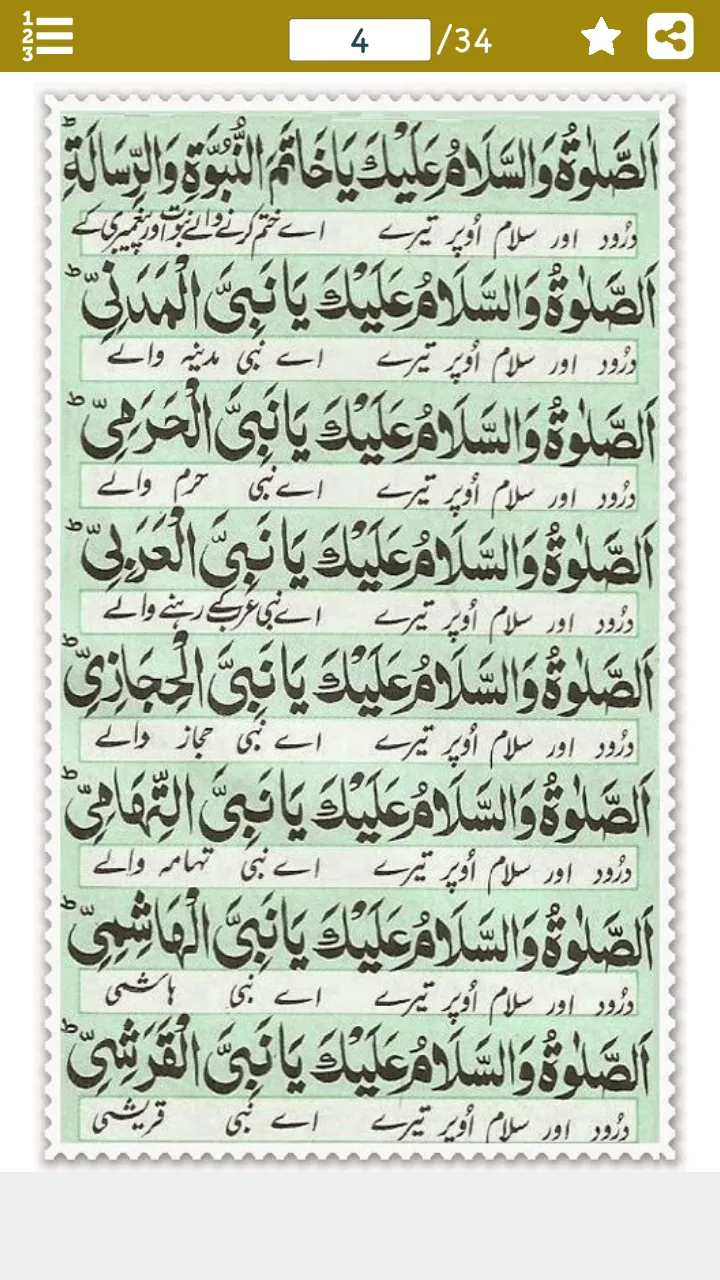 1 2 3
4 /34
اَلصَّلٰوةُ وَالسَّلَامُ عَلَيْكَ يَا خَاتَمَ النُّبُوَّةِ وَالرِّسَالَةِ ط
درُود اور سلام اُوپر تیرے اے ختم کرنے والے نبوت اور پیغمبری کے
اَلصَّلٰوةُ وَالسَّلَامُ عَلَيْكَ يَا نَبِيَّ الْمَدَنِيِّ ط
درُود اور سلام اُوپر تیرے اے نبی مدینہ والے
اَلصَّلٰوةُ وَالسَّلَامُ عَلَيْكَ يَا نَبِيَّ الْحَرَمِيِّ ط
درُود اور سلام اُوپر تیرے اے نبی حرم والے
اَلصَّلٰوةُ وَالسَّلَامُ عَلَيْكَ يَا نَبِيَّ الْعَرَبِيِّ ط
درُود اور سلام اُوپر تیرے اے نبی عرب کے رہنے والے
اَلصَّلٰوةُ وَالسَّلَامُ عَلَيْكَ يَا نَبِيَّ الْحِجَازِيِّ ط
درُود اور سلام اُوپر تیرے اے نبی حجاز والے
اَلصَّلٰوةُ وَالسَّلَامُ عَلَيْكَ يَا نَبِيَّ التِّهَامِيِّ ط
درُود اور سلام اُوپر تیرے اے نبی تہامہ والے
اَلصَّلٰوةُ وَالسَّلَامُ عَلَيْكَ يَا نَبِيَّ الْهَاشِمِيِّ ط
درُود اور سلام اُوپر تیرے اے نبی ہاشمی
اَلصَّلٰوةُ وَالسَّلَامُ عَلَيْكَ يَا نَبِيَّ الْقَرَشِيِّ ط
درُود اور سلام اُوپر تیرے اے نبی قریشی